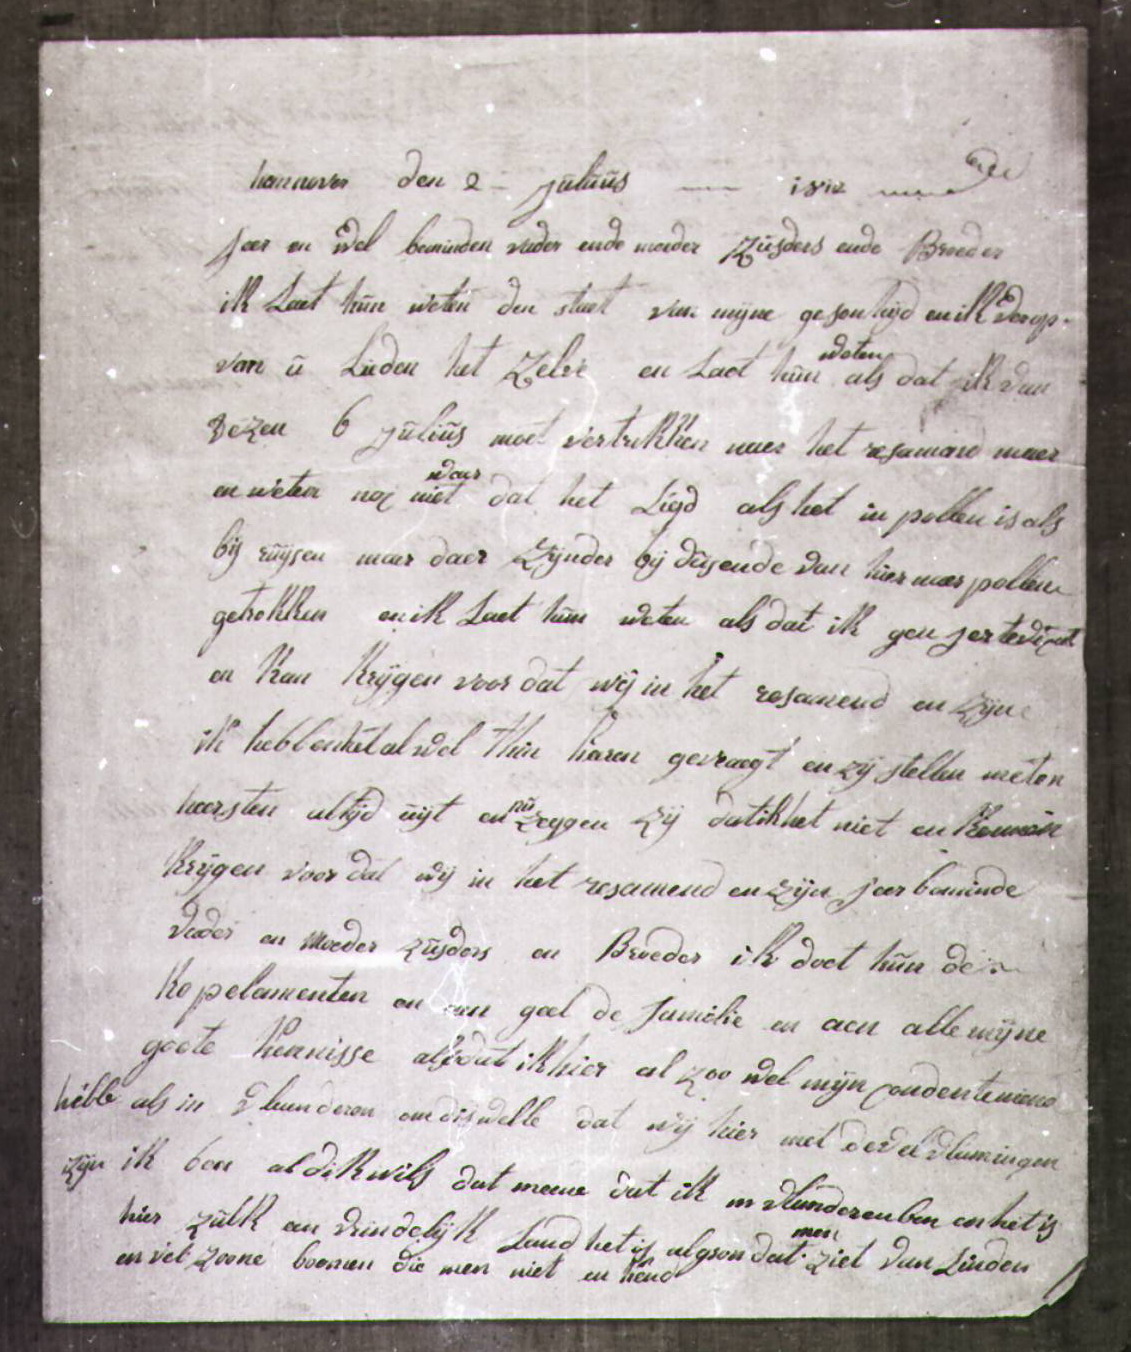 hannover den 2 - julius 1812
seer en wel beminden vader ende moeder Zusders ende Broeder
ik Laet hun weten den staet van mijne gesonhijd en ik verop
van u Lieden het Zelve en Laet hun weten als dat ik van
dezen 6 julius moet vertrekken naer het resamend maer
en weten nog niet waer dat het Ligd als het in pollen is als
bij ruijsen maer daer zijnder bij dusende van hier naer pollen
getrokken en ik Laet hun weten als dat ik gen serteviqat
en kan krijgen voor dat wij in het resamend en zijn
ik hebt enket al wel thin kaeren gevraegt en zij stellen meten
heersten altijd uijt en nu zeggen zij dat ik het niet en konnen
krijgen voor dat wij in het resamend en zijn seer beminde
vader en Moeder zusders en Broeder ik doet hun de
kopelamenten en aen geel de familie en aen alle mijne
goete kennisse als dat ik hier al zoo wel mijn contentemend
hebbe als in vlanderen omdiswelle dat wij hier met de vel vlamingen
zijn ik ben al dikwils dat meene dat ik in vlanderen ben en het is
hier zulk en vrindelijk Land het is algson dat men ziet van Linden
en vel zoone boomen die men niet en kend